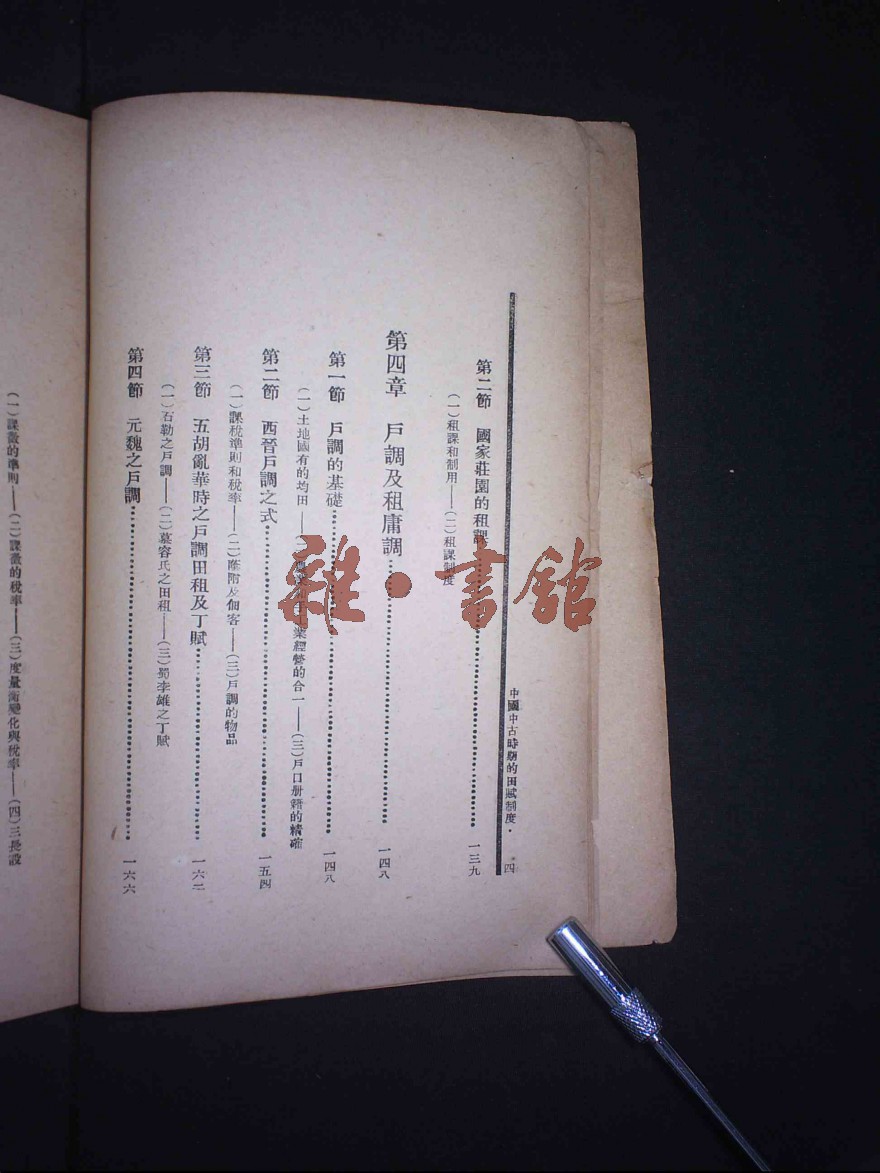 中國中古時期的田賦制度・ 四
第二節 國家莊園的租課 一三九
(一)租課和制用——(二)租課制度
第四章 戶調及租庸調 一四八
第一節 戶調的基礎 一四八
(一)土地國有的均田—— 業經營的合一——(三)戶口册籍的精確
第二節 西晉戶調之式 一五四
(一)課稅準則和稅率——(二)蔭附及佃客——(三)戶調的物品
第三節 五胡亂華時之戶調田租及丁賦 一六二
(一)石勒之戶調——(二)慕容氏之田租——(三)蜀李雄之丁賦
第四節 元魏之戶調 一六六
(一)課徵的準則——(二)課徵的稅率——(三)度量衡變化與稅率——(四)三長設
雜・書館